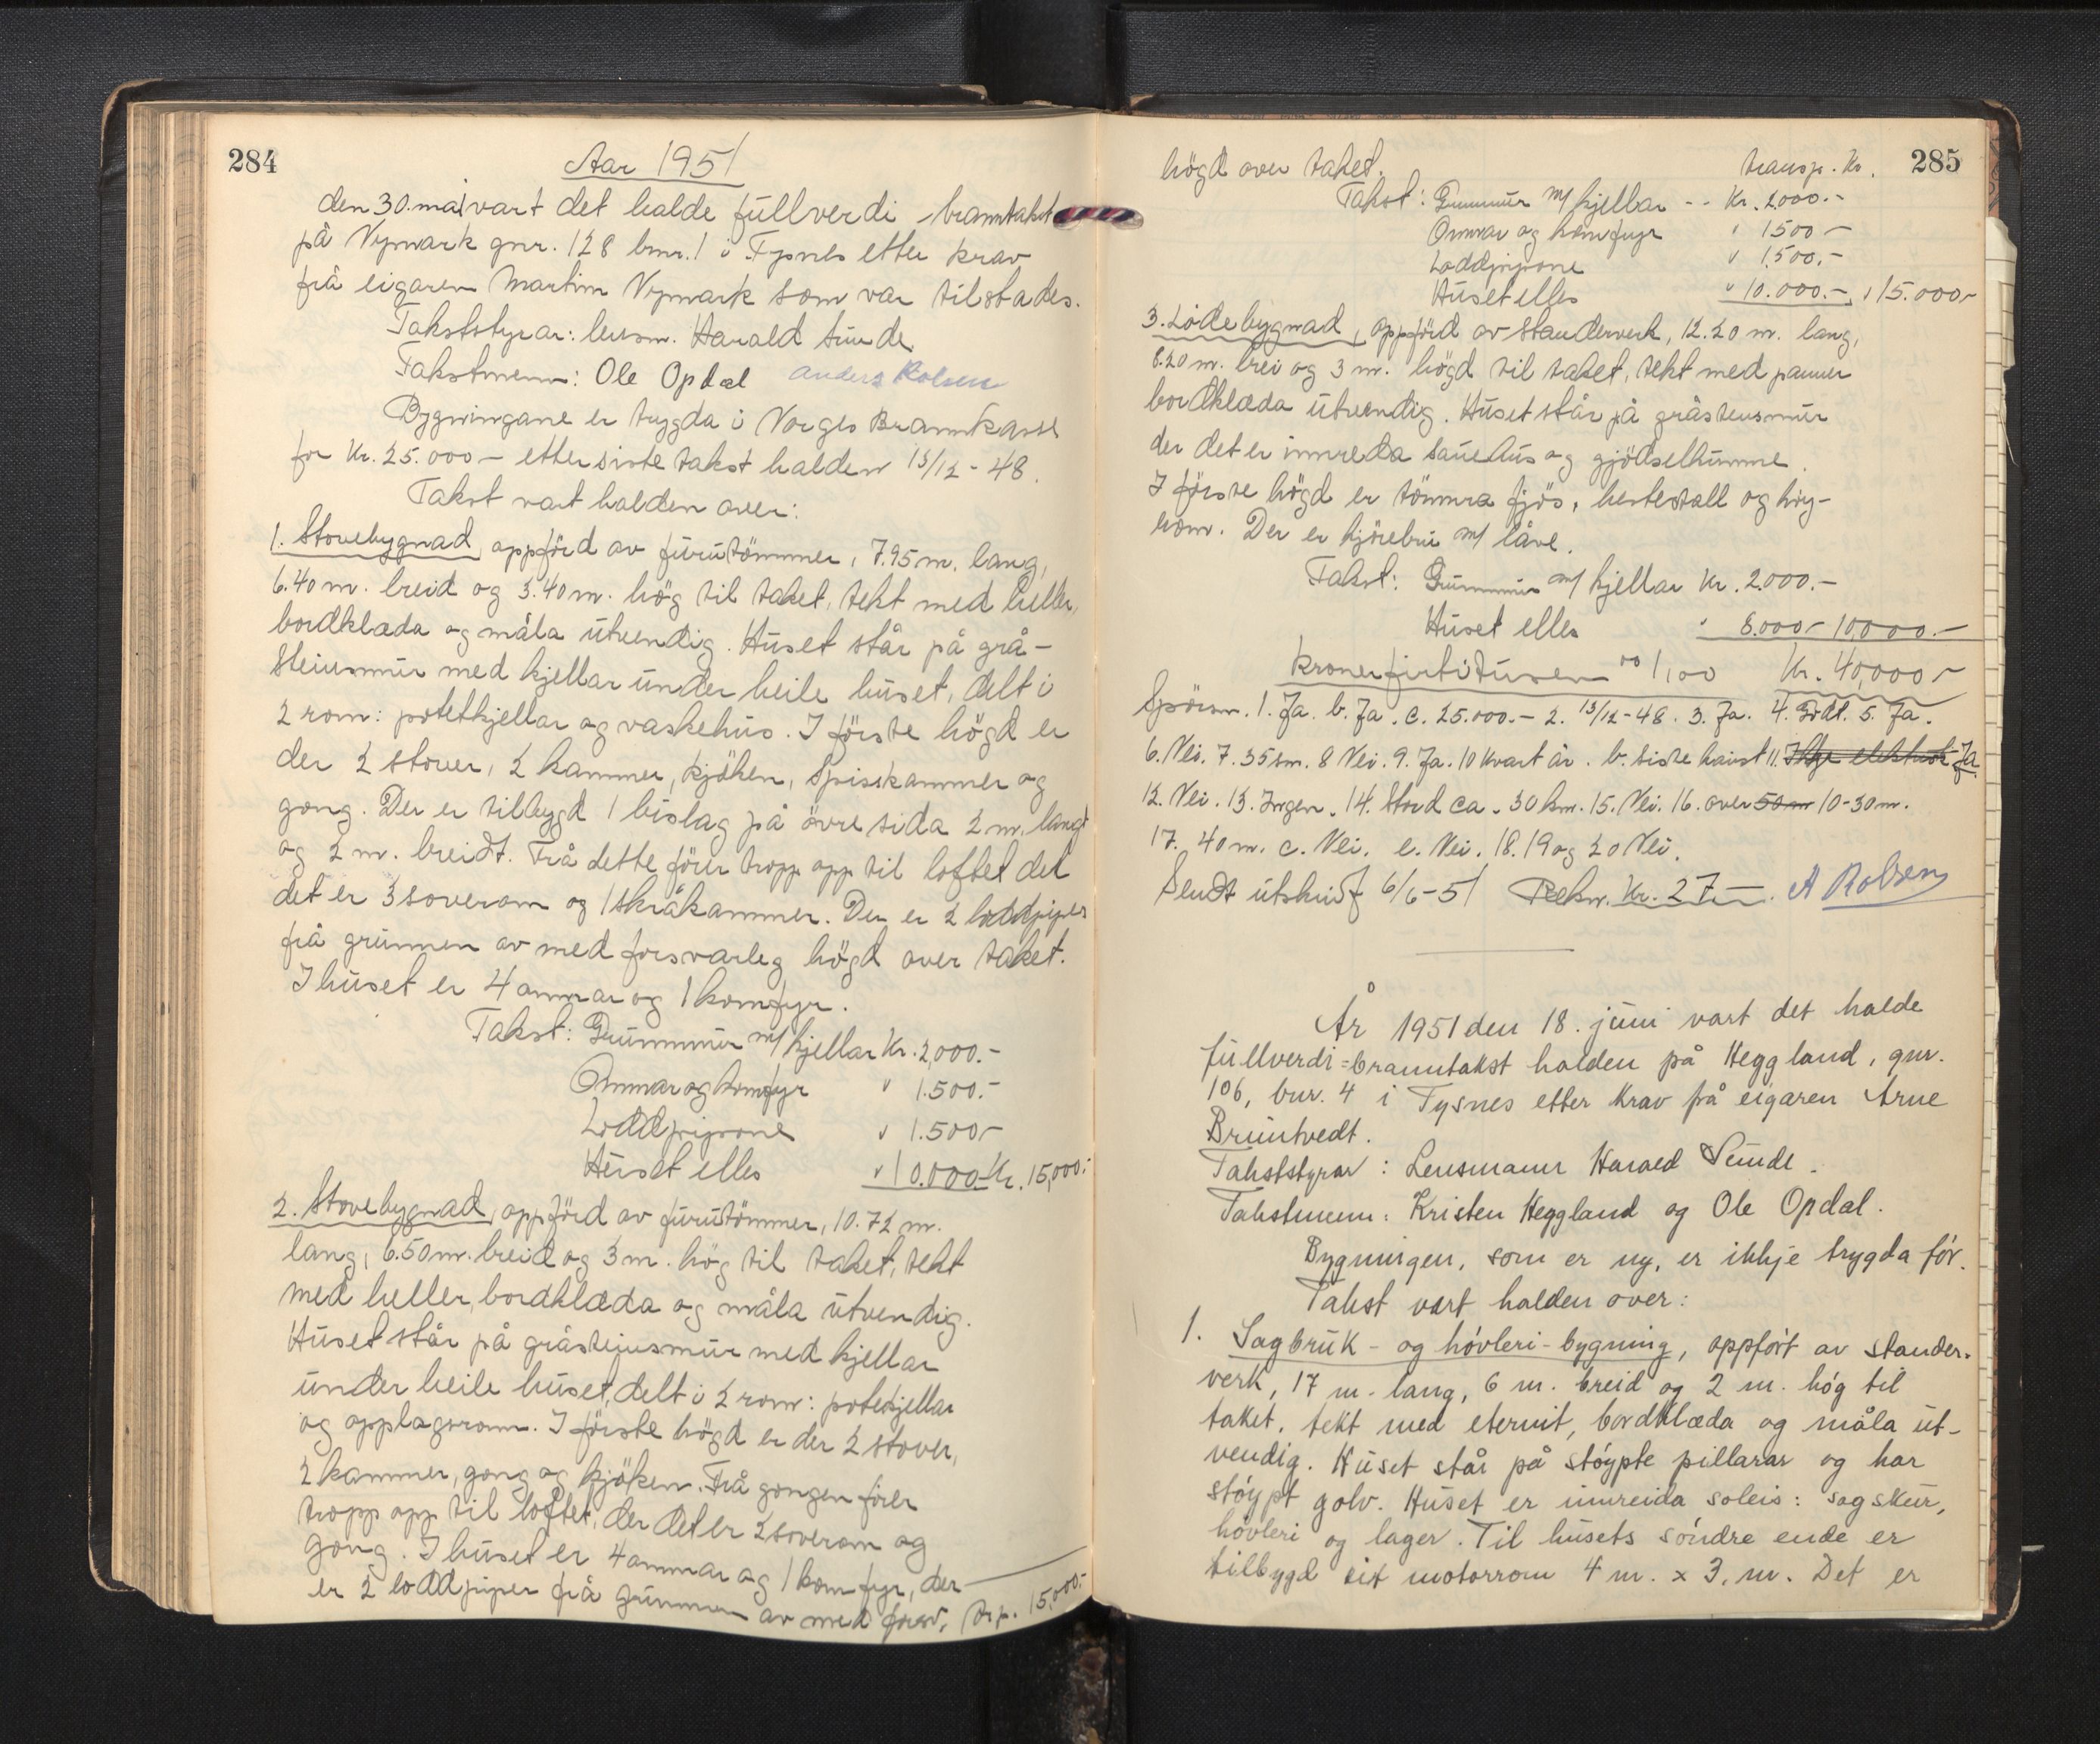 284
Aar 1951
den 30. mai vart det halde fullverdi-branntakst
på Nymark gnr. 128 bnr. 1 i Tysnes etter krav
frå eigaren Martin Nymark som var tilstades.
Takststyrar: lensm. Harald Sunde
Takstmenn: Ole Opdal Anders Rolsen
Bygningane er trygda i Norges Brannkasse
for Kr. 25.000 – etter siste takst halden 13/12 - 48.
Takst vart halden over:
1. Stovebygnad, oppförd av furutömmer, 7.95 m. lang,
6.40 m. breid og 3.40 m. hög til taket, tekt med heller,
bordklæda og måla utvendig. Huset står på grå-
steinsmur med kjellar under heile huset, delt i
2 rom: potetkjellar og vaskehus. I förste högd er
der 2 stover, 2 kammer, kjöken, Spisskammer og
gong. Der er tilbygd 1 bislag på övre sida 2 m. langt
og 2 m. breidt. Frå dette förer tropp opp til loftet der
det er 3 soverom og 1 skråkammer. Der er 2 loddpiper
frå grunnen av med forsvarleg högd over taket.
I huset er 4 omnar og 1 komfyr.
Takst: Grunnmur m/ kjellar Kr. 2,000.-
Omnar og komfyr " 1.500.-
Loddpipone " 1.500 –
Huset elles " 10.000 Kr. 15,000.-
2. Stovebygnad, oppförd av furutömmer, 10.72 m.
lang, 6.50 m. breid og 3 m. hög til taket, tekt
med heller, bordklæda og måla utvendig.
Huset står på gråsteinsmur med kjellar
under heile huset, delt i 2 rom: potetkjellar
og opplagsrom. I förste högd er der 2 stover,
2 kammer, gong og kjöken. Frå gongen förer
tropp opp til loftet, der det er 2 soverom og
gong. I huset er 4 omnar og 1 komfyr, der
er 2 loddpiper frå grunnen av med forsv. trp. 15,000.-
högd over taket. transp. Kr. 285
Takst: Grunnmur m/ kjellar -- Kr. 2000.-
Omnar og komfyr " 1500 –
Loddpipone " 1.500.-
Huset elles " 10.000.- " 15.000 –
3. Lödebygnad, oppförd av standerverk, 12.20 m. lang,
8.20 m. brei og 3 m. högd til taket, tekt med panner
bordklæda utvendig. Huset står på gråsteinsmur
der det er innreda sauehus og gjödselkumme.
I förste högd er tömmra fjös, hestestall og höy-
rom. Der er kjörebru m/ låve.
Takst: Grunnmur m/ kjellar Kr. 2.000.-
Huset elles " 8.000 – 10,000.-
Kroner firtitusen 00/100 Kr. 40,000 –
Spörsm. 1. Ja. b. Ja. c. 25.000.- 2. 13/12 - 48. 3. Ja. 4. Godt. 5. Ja.
6. Nei. 7. 35 sm. 8 Nei. 9. Ja. 10 kvart år. b. siste haust 11. Ikkje elektrisk Ja
12. Nei. 13. Ingen. 14. Stord ca. 30 km. 15. Nei. 16. over 50 m 10-30 m.
17. 40 m. c. Nei. e. Nei. 18. 19 og 20 Nei.
Sendt utskrift 6/6-51 Rekn. Kr. 27 –. A Rolsen
År 1951 den 18. juni vart det halde
fullverdi=branntakst halden på Heggland, gnr.
106, bnr. 4 i Tysnes etter krav frå eigaren Arne
Bruntvedt.
Takststyrar: Lensmann Harald Sunde.
Takstmenn: Kristen Heggland og Ole Opdal.
Bygningen, som er ny, er ikkje trygda för.
Takst vart halden over:
1. Sagbruk - og hövleri - bygning, oppfört av stander-
verk, 17 m. lang, 6 m. breid og 2 m. hög til
taket, tekt med eternit, bordklæda og måla ut-
vendig. Huset står på stöypte pillarar og har
stöypt golv. Huset er innreida soleis: sagskur,
hövleri og lager. Til husets söndre ende er
tilbygd eit motorrom 4 m. x 3. m. Det er